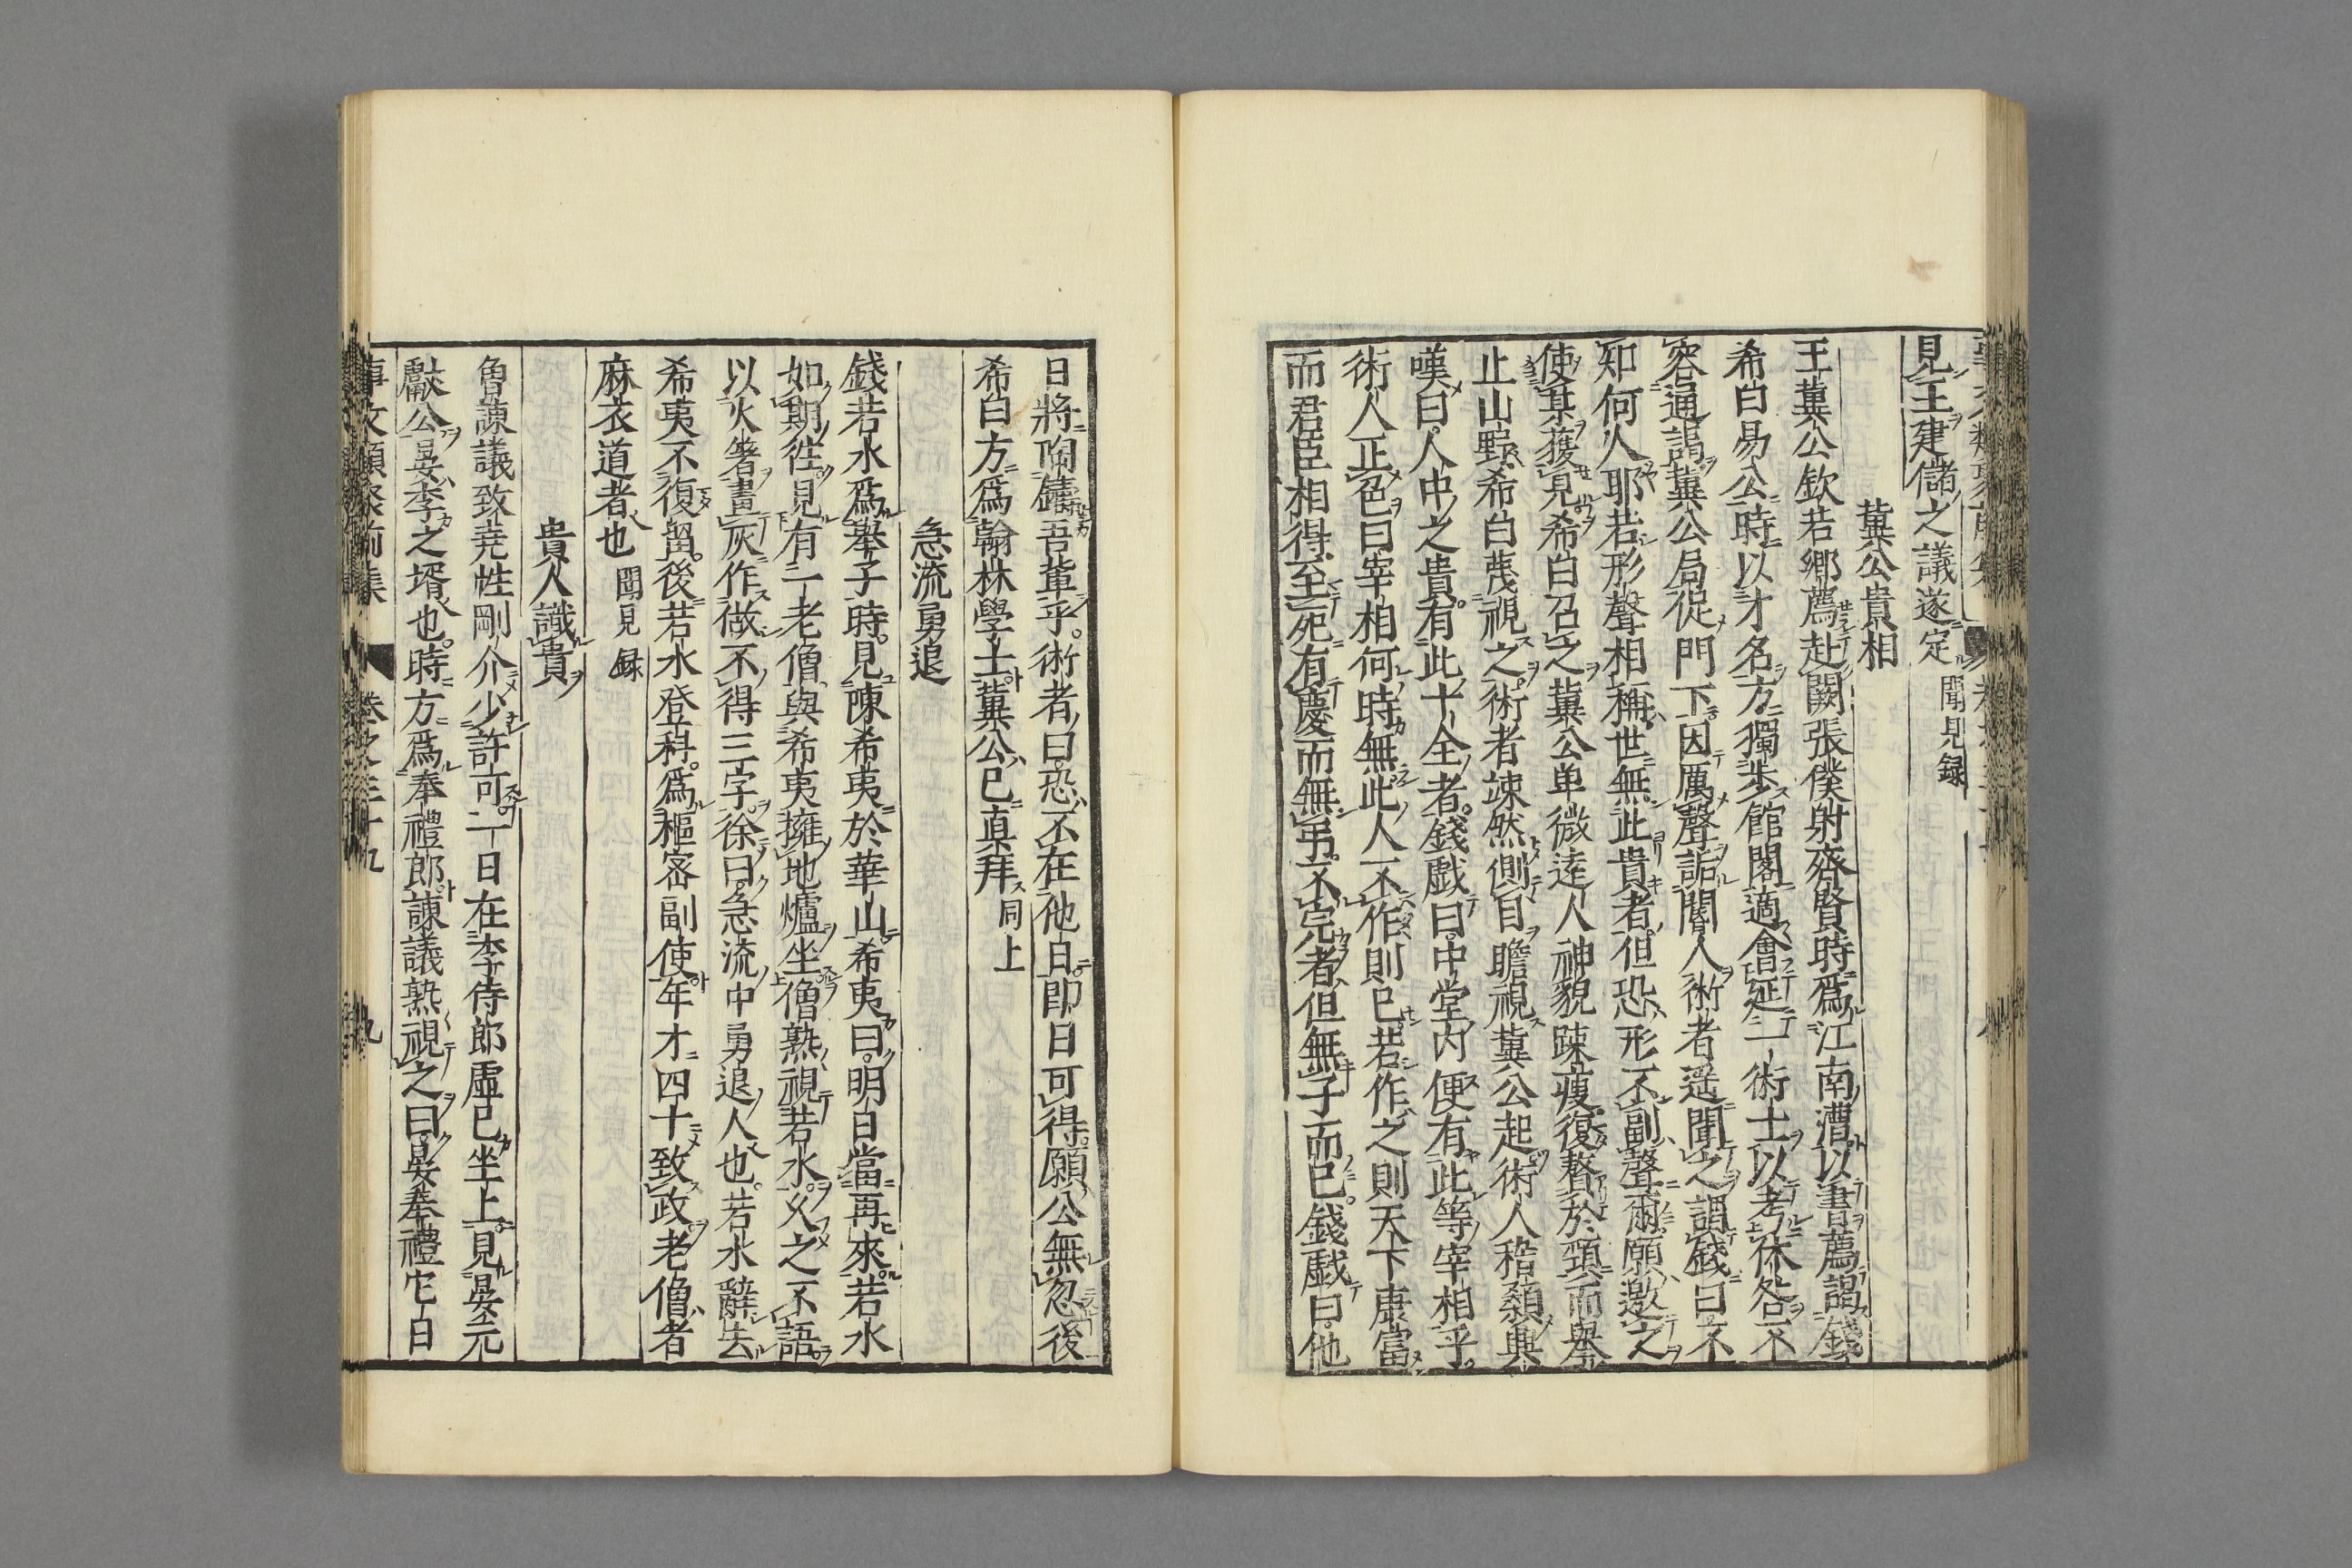 見王建儲之議遂定 聞見録
冀公貴相
王冀公欽若郷薦赴闕張僕射齊賢時爲江南漕以書薦謁錢
希白易公時以才名方獨歩館閣適會延一術士以考休咎不
容通謁冀公局促門下因厲聲詬閽人術者遥聞之謂錢曰不
知何人耶若形聲相稱世無此貴者但恐形不副聲爾願邀之
使某獲見希白召之冀公单微逺人神貌踈痩復贅於頸而舉
止山野希白蔑視之術者竦然側目瞻視冀公起術人稽顙興
嘆曰人中之貴有此十全者錢戯曰中堂内便有此等宰相乎
術人正色曰宰相何時無此人不作則已若作之則天下康富
而君臣相得至死有慶而無吊不完者但無子而已錢戯曰他
日將陶鑄吾輩乎術者曰恐不在他日即日可得願公無忽後
希白方爲翰林學士冀公已真拜 同上
急流勇退
錢若水爲舉子時見陳希夷於華山希夷曰明日當再來若水
如期徃見有一老僧與希夷擁地爐坐僧熟視若水乆之不語
以火箸畫灰作做不得三字徐曰急流中勇退人也若水辭去
希夷不復留後若水登科爲樞密副使年才四十致政老僧者
麻衣道者也 聞見録
貴人識貴
魯諫議致尭性剛介少許可一日在李侍郎虚已坐上見晏元
獻公晏李之壻也時方爲奉禮郎諫議熟視之曰晏奉禮它日
事文類聚前集 卷之三十九 九